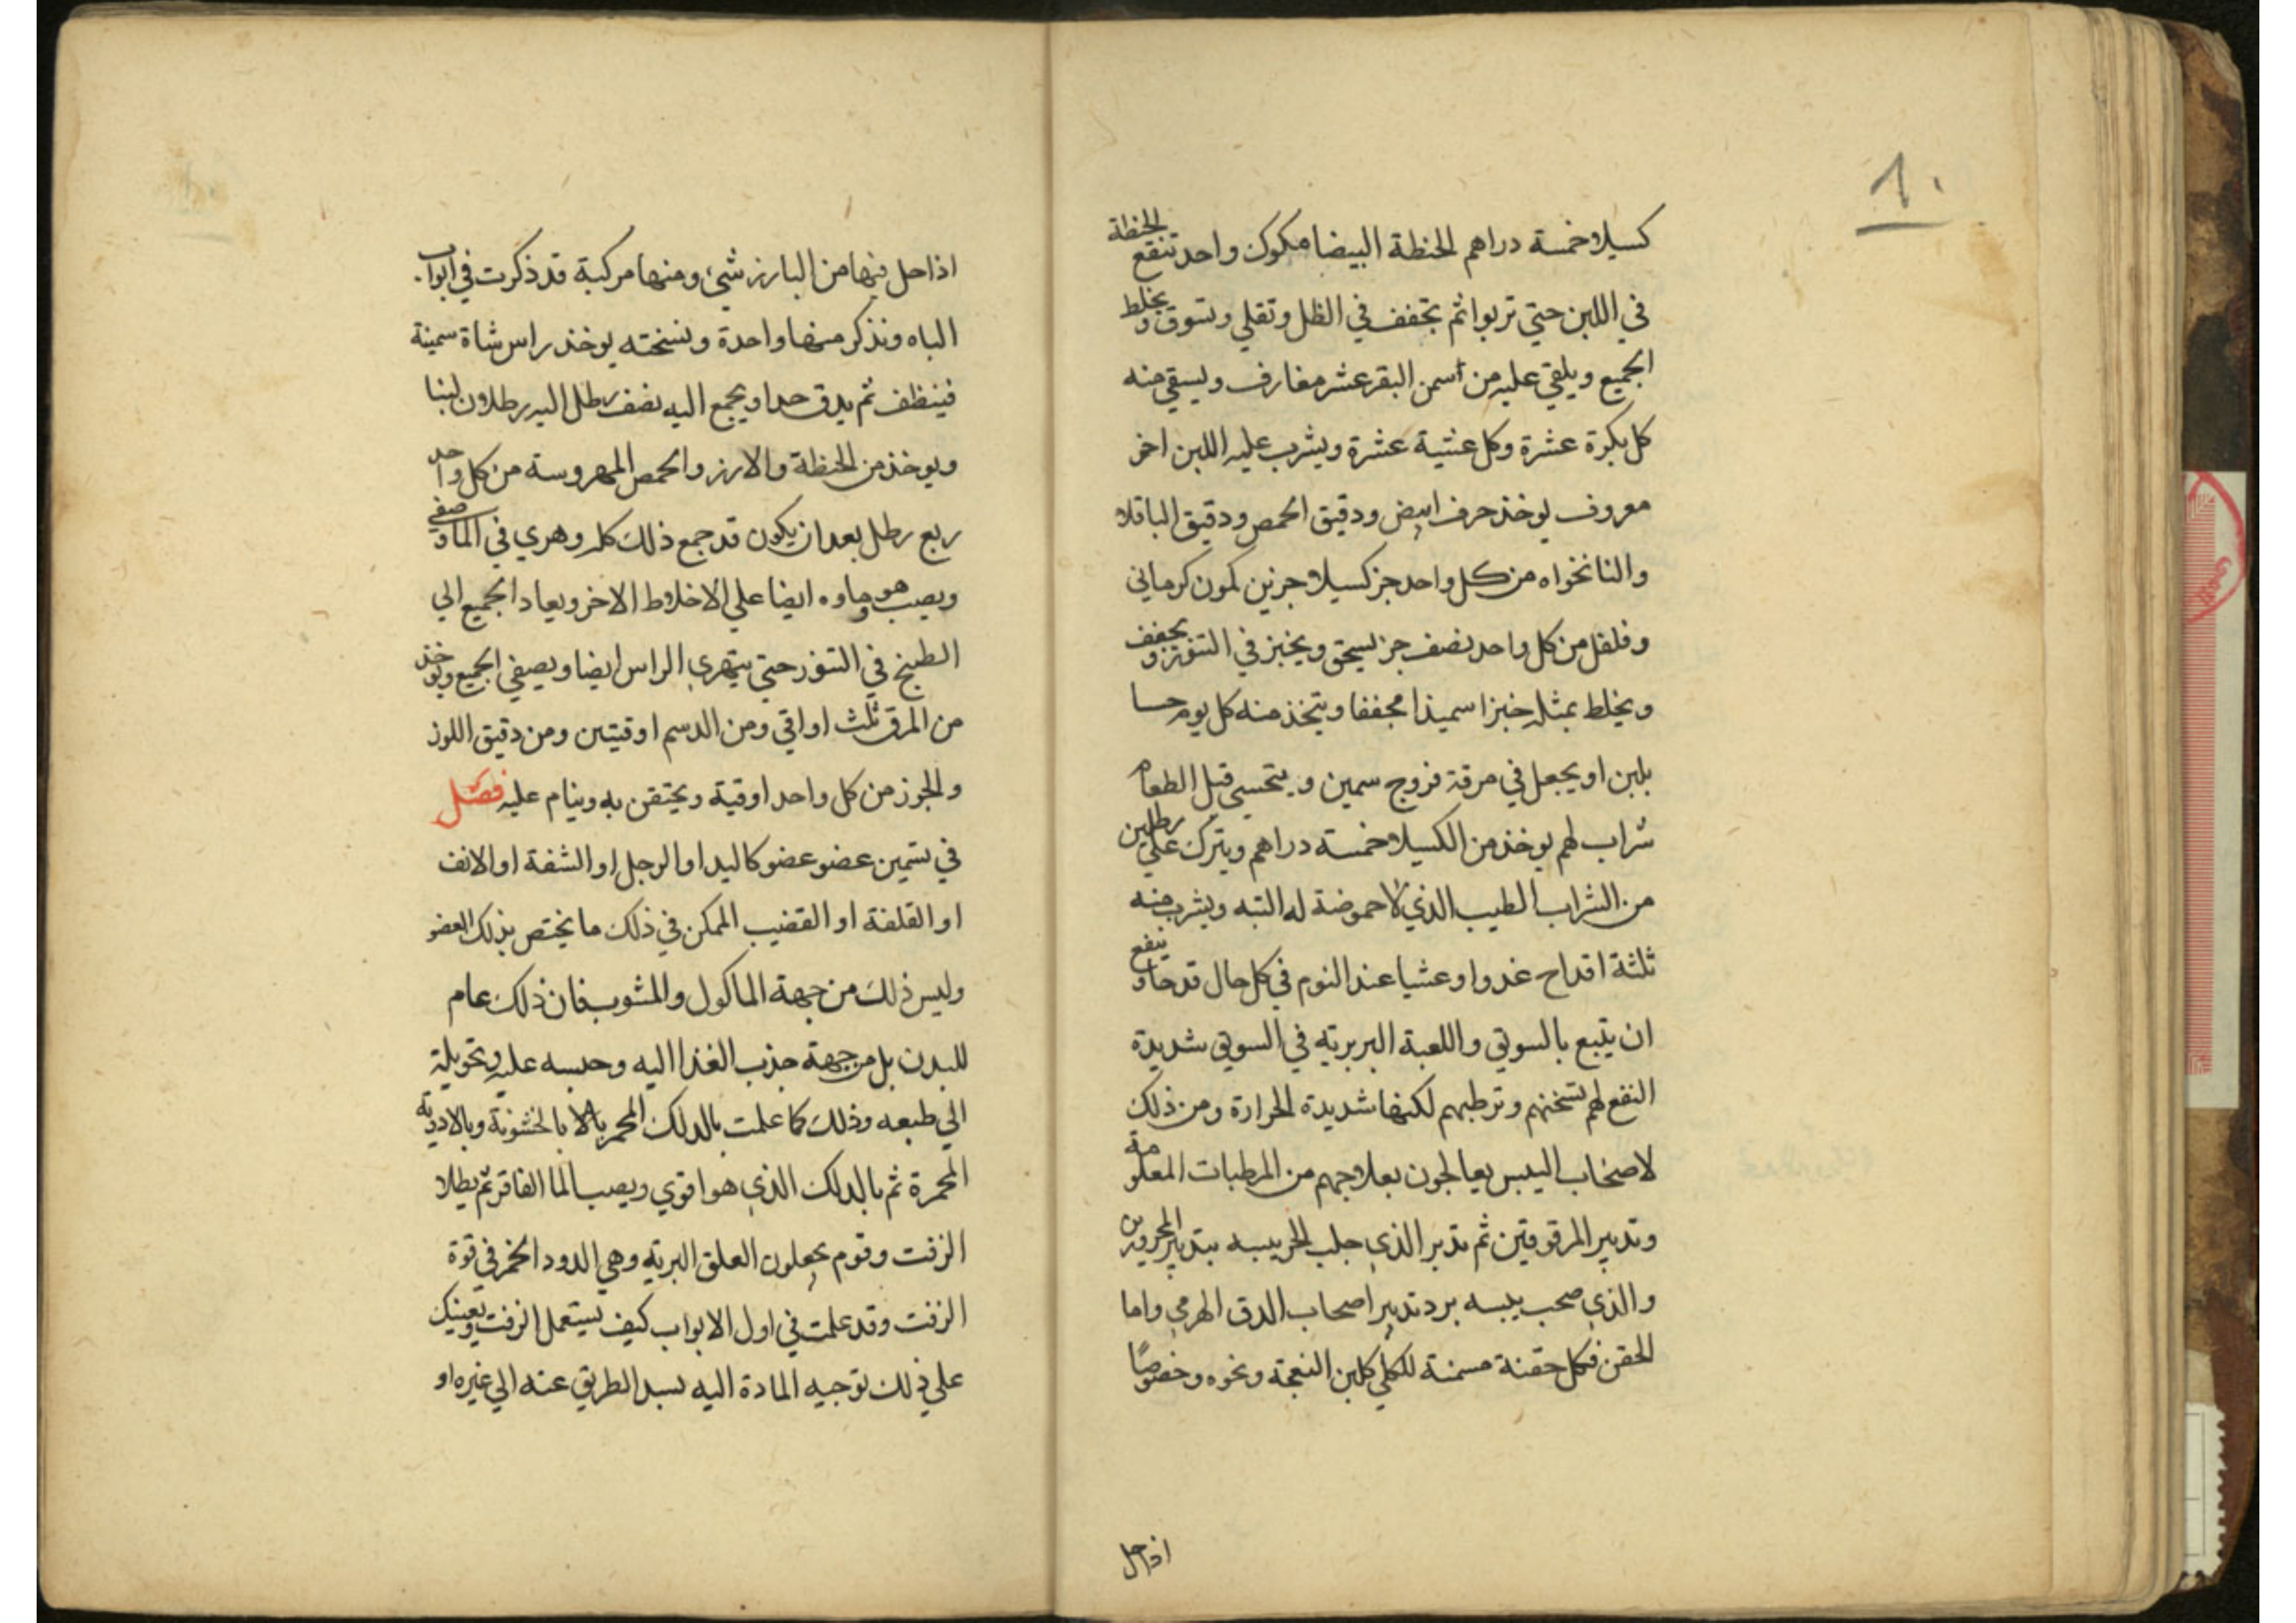 ١٠
كسيلا خمسة دراهم الحنطة البيضا مكوك واحد تنقع الحنطة
في اللبن حتي تربوا ثم تجفف في الظل وتقلي وتسوق ويخلط
الجميع ويلقي عليه من سمن البقر عشر مغارف ويسقي منه
كل بكرة عشرة وكل عشية عشرة ويشرب عليه اللبن اخر
معروف يوخذ حرف ابيض ودقيق الحمص ودقيق الباقلا
والنانخواه من كل واحد جز كسيلا جزين كمون كرماني
وفلفل من كل واحد نصف جز يسحق ويخبز في التنور ويجفف
ويخلط بمثله خبزا سميذا مجففا ويتخذ منه كل يوم حسا
بلبن او يجعل في مرقة فروج سمين ويتحسي قبل الطعام
شراب لهم يوخذ من الكسيلا خمسة دراهم ويترك علي رطلين
من الشراب الطيب الذي لا حموضة له البتة ويشرب منه
ثلثة اقداح غدوا وعشيا عند النوم في كل حال قدحا وينفع
ان يتبع بالسويق واللعبة البربرية في السويق شديدة
النفع لهم تسخنهم وترطبهم لكنها شديدة الحرارة ومن ذلك
لاصحاب اليبس يعالجون بعلاجهم من المرطبات المعلومة
وتدبير المرقوقين ثم تدبر الذي جلب الحر يبسه بتدبير المحرورين
والذي صحب يبسه برد تدبير اصحاب الدق الهرمي واما
الحقن فكل حقنة مسمنة للكلي كلبن النعجة ونحوه وخصوصًا
اذا حل
اذا حل فيها من البارزد شي ومنها مركبة قد ذكرت في ابواب
الباه ونذكر منها واحدة ونسخته يوخذ راس شاة سمينة
فينظف ثم يدق جدا ويجمع اليه نصف رطل اليه رطلان لبنا
ويوخذ من الحنطة والارز والحمص المهروسة من كل واحد
ربع رطل بعد ان يكون قد جمع ذلك كله وهري في الما وصفي
ويصب هو وماوه ايضا علي الاخلاط الاخر ويعاد الجميع الي
الطبخ في التنور حتي يتهري الراس ايضا ويصفي الجميع ويوخذ
من المرق ثلث اواقي ومن الدسم اوقيتين ومن دقيق اللوز
والجوز من كل واحد اوقية ويحتقن به وينام عليه فصل
في تسمين عضو عضو كاليد او الرجل او الشفة او الانف
او القلفة او القضيب الممكن في ذلك ما يختص بذلك العضو
وليس ذلك من جهة الماكول والمشوب فان ذلك عام
للبدن بل من جهة جذب الغذا اليه وحبسه عليه وتحويلة
الي طبعه وذلك كما علمت بالدلك المحمر بالا بالخشونة وبالادوية
المحمرة ثم بالدلك الذي هو اقوي ويصب الما الفاتر ثم يطلا
الزفت وقوم يجعلون العلق البرية وهي الدود الحمر في قوة
الزفت وقد علمت في اول الابواب كيف يستعمل الزفت ويعينك
علي ذلك توجيه المادة اليه بسد الطريق عنه الي غيره او